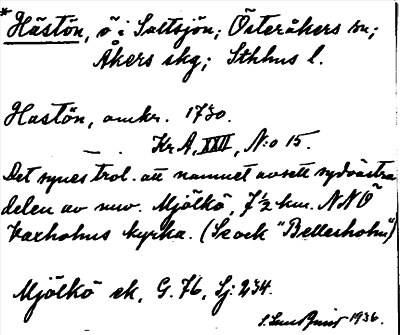 * Hästön, ö i Saltsjön; Österåkers sn;
Åkers skg; Sthlms l.
Hastön, omkr. 1730.
Kr. A, XXII, N:o 15.
Det synes trol. att namnet avsett sydöstra
delen av nuv. Mjölkö, 7½ km. NNÖ
Vaxholms kyrka. (Se ock "Bellesholm")
Mjölkö ek, G. 76, Sj: 234.
1936.